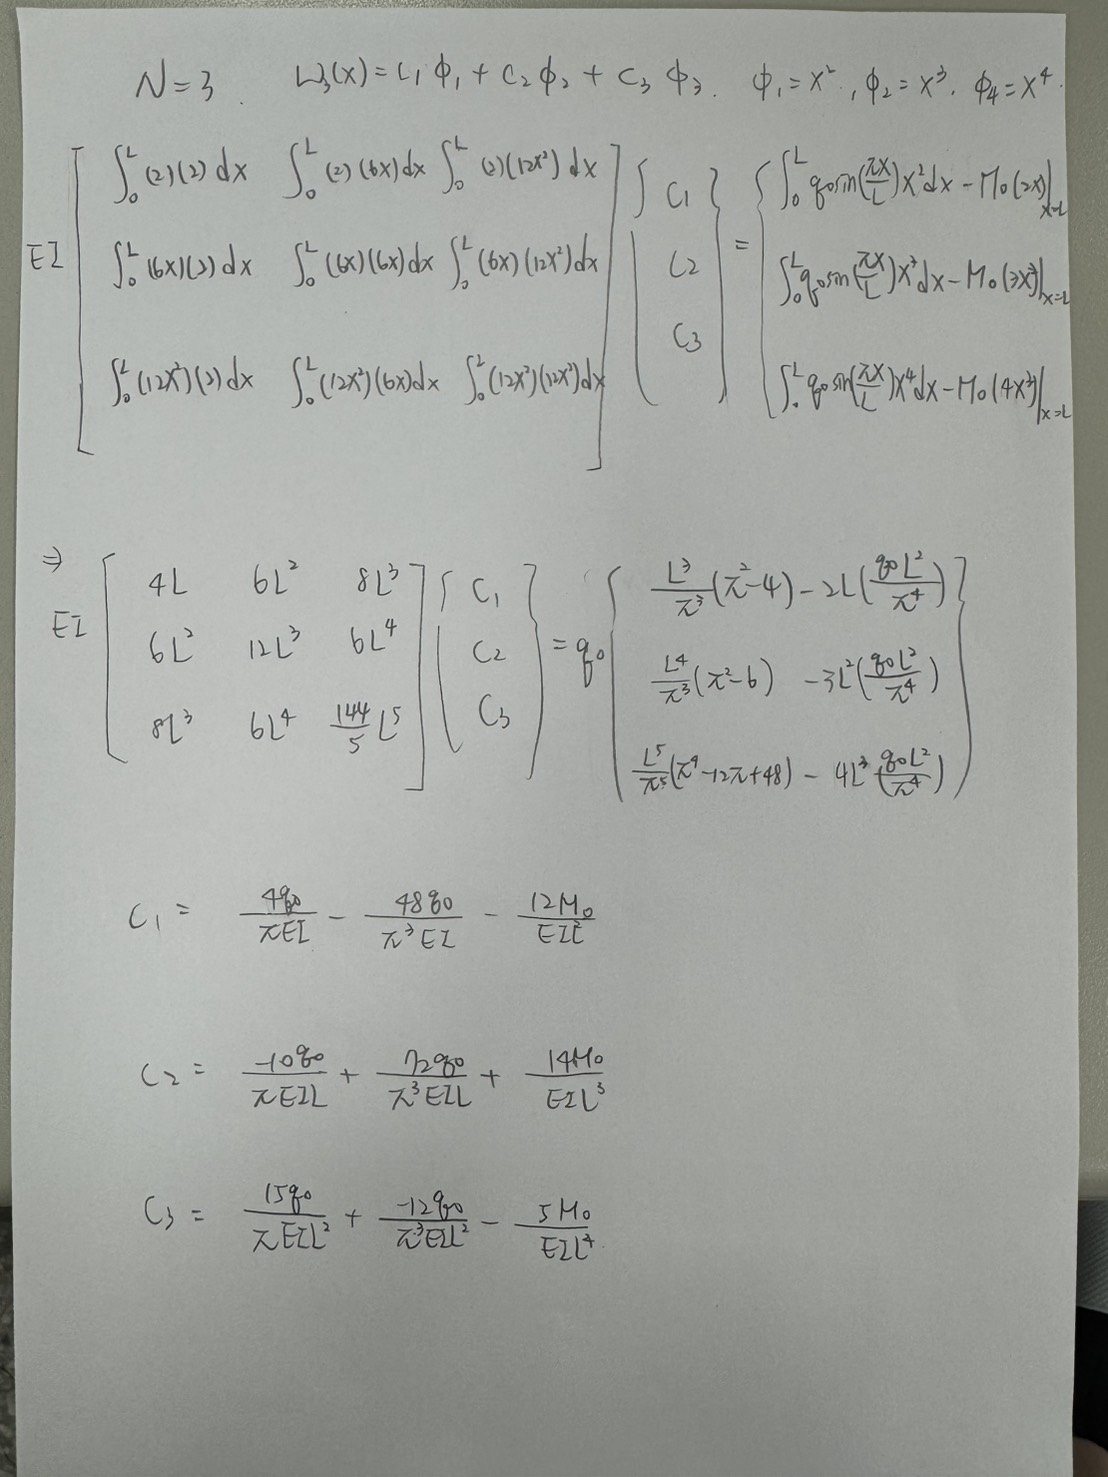 N=3. W₃(x)=C₁ϕ₁+C₂ϕ₂+C₃ϕ₃. ϕ₁=x², ϕ₂=x³. ϕ₄=x⁴.
EI [ ∫₀ᴸ(2)(2)dx ∫₀ᴸ(2)(6x)dx ∫₀ᴸ(2)(12x²)dx ; ∫₀ᴸ(6x)(2)dx ∫₀ᴸ(6x)(6x)dx ∫₀ᴸ(6x)(12x²)dx ; ∫₀ᴸ(12x²)(2)dx ∫₀ᴸ(12x²)(6x)dx ∫₀ᴸ(12x²)(12x²)dx ] { C₁ ; C₂ ; C₃ } = { ∫₀ᴸ q₀sin(πx/L)x²dx-M₀(2x)|x=L ; ∫₀ᴸ q₀sin(πx/L)x³dx-M₀(3x²)|x=L ; ∫₀ᴸ q₀sin(πx/L)x⁴dx-M₀(4x³)|x=L }
⇒ EI [ 4L 6L² 8L³ ; 6L² 12L³ 6L⁴ ; 8L³ 6L⁴ 144/5 L⁵ ] { C₁ ; C₂ ; C₃ } = q₀ { L³/π³(π²-4)-2L(q₀L²/π⁴) ; L⁴/π³(π²-6) -3L²(q₀L²/π⁴) ; L⁵/π⁵(π⁴-12π+48)-4L³(q₀L²/π⁴) }
C₁= 4q₀/πEI - 48q₀/π³EI - 12M₀/EIL²
C₂= -10q₀/πEIL + 72q₀/π³EIL + 14M₀/EIL³
C₃= 15q₀/πEIL² + -12q₀/π³EIL² - 5M₀/EIL⁴